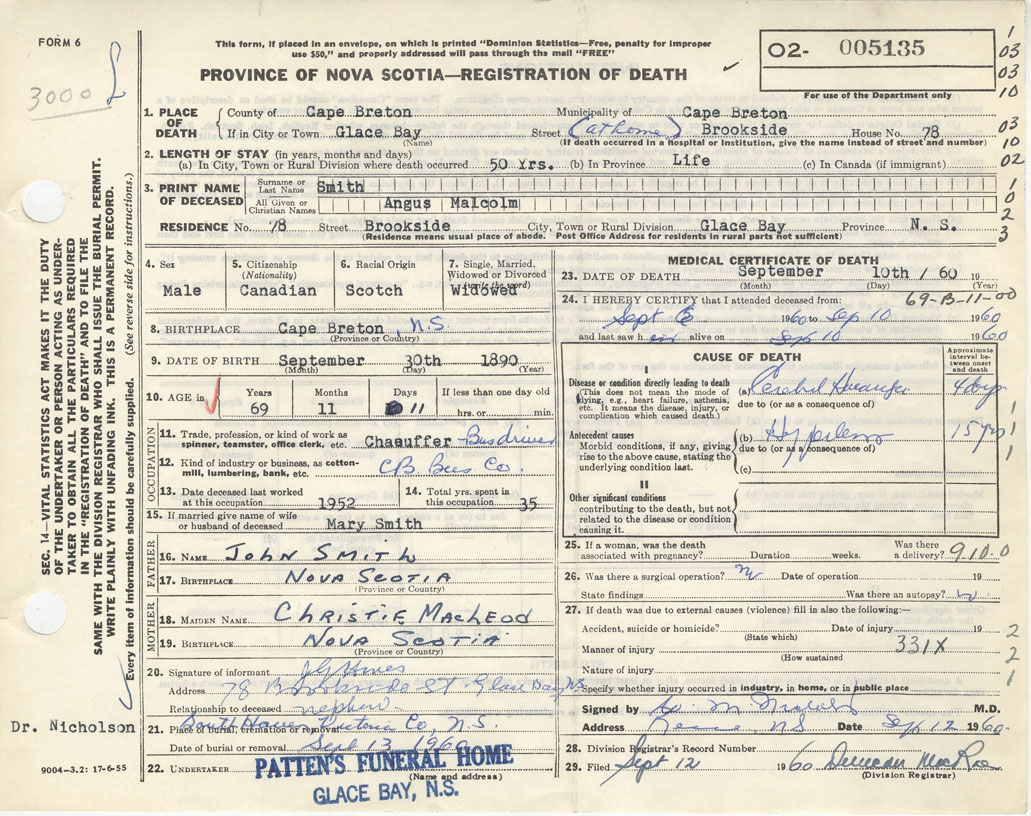 FORM 6
3000
This form, if placed in an envelope, on which is printed "Dominion Statistics—Free, penalty for improper
use $50," and properly addressed will pass through the mail "FREE"
PROVINCE OF NOVA SCOTIA—REGISTRATION OF DEATH
O2- 005135
For use of the Department only
1
03
03
10
03
10
02
1
0
2
3
1. PLACE OF DEATH
County of Cape Breton Municipality of Cape Breton
If in City or Town Glace Bay Street (at home) Brookside House No. 78
(Name) (If death occurred in a hospital or institution, give the name instead of street and number)
2. LENGTH OF STAY (in years, months and days)
(a) In City, Town or Rural Division where death occurred 50 Yrs. (b) In Province Life (c) In Canada (if immigrant)
3. PRINT NAME OF DECEASED
Surname or Last Name Smith
All Given or Christian Names Angus Malcolm
RESIDENCE No. 78 Street Brookside City, Town or Rural Division Glace Bay Province N. S.
(Residence means usual place of abode. Post Office Address for residents in rural parts not sufficient)
4. Sex
Male
5. Citizenship
(Nationality)
Canadian
6. Racial Origin
Scotch
7. Single, Married,
Widowed or Divorced
(write the word)
Widowed
8. BIRTHPLACE Cape Breton, N.S.
(Province or Country)
9. DATE OF BIRTH September 30th 1890
(Month) (Day) (Year)
10. AGE in
Years 69
Months 11
Days 11
If less than one day old
hrs. or min.
OCCUPATION
11. Trade, profession, or kind of work as
spinner, teamster, office clerk, etc. Chaeuffer Bus driver
12. Kind of industry or business, as cotton-
mill, lumbering, bank, etc. CB Bus Co.
13. Date deceased last worked
at this occupation 1952
14. Total yrs. spent in
this occupation 35
15. If married give name of wife
or husband of deceased Mary Smith
FATHER
16. NAME JOHN SMITH
17. BIRTHPLACE NOVA SCOTIA
(Province or Country)
MOTHER
18. MAIDEN NAME CHRISTIE MacLEOD
19. BIRTHPLACE NOVA SCOTIA
(Province or Country)
20. Signature of informant
Address 78 Brookside St Glace Bay NS
Relationship to deceased nephew
21. Place of burial, cremation or removal South Haven Victoria Co, N.S.
Date of burial or removal Sept 13 1960
22. UNDERTAKER PATTEN'S FUNERAL HOME
(Name and address)
GLACE BAY, N.S.
MEDICAL CERTIFICATE OF DEATH
23. DATE OF DEATH September 10th / 60 19
(Month) (Day) (Year)
24. I HEREBY CERTIFY that I attended deceased from: 69-B-11-00
Sept 1960 to Sep 10 1960
and last saw h im alive on Sep 10 1960
CAUSE OF DEATH
Approximate
interval be-
tween onset
and death
I
Disease or condition directly leading to death
(This does not mean the mode of
dying, e.g., heart failure, asthenia,
etc. It means the disease, injury, or
complication which caused death.)
(a) Cerebral
due to (or as a consequence of)
Antecedent causes
Morbid conditions, if any, giving
rise to the above cause, stating the
underlying condition last.
(b) 15 yrs
due to (or as a consequence of)
(c)
1
1
1
II
Other significant conditions
contributing to the death, but not
related to the disease or condition
causing it.
25. If a woman, was the death
associated with pregnancy? Duration weeks. Was there
a delivery? 910 0
26. Was there a surgical operation? Date of operation 19
State findings Was there an autopsy?
27. If death was due to external causes (violence) fill in also the following:—
Accident, suicide or homicide? Date of injury 19
(State which)
Manner of injury 331X
(How sustained
Nature of injury
2
2
1
Specify whether injury occurred in industry, in home, or in public place
Signed by M.D.
Address N.S Date Sep 12 1960
28. Division Registrar's Record Number
29. Filed Sept 12 1960 Duncan MacRae
(Division Registrar)
SEC. 14—VITAL STATISTICS ACT MAKES IT THE DUTY
OF THE UNDERTAKER OR PERSON ACTING AS UNDER-
TAKER TO OBTAIN ALL THE PARTICULARS REQUIRED
IN THE "REGISTRATION OF DEATH" AND TO FILE THE
SAME WITH THE DIVISION REGISTRAR WHO SHALL ISSUE THE BURIAL PERMIT.
WRITE PLAINLY WITH UNFADING INK. THIS IS A PERMANENT RECORD.
Every item of information should be carefully supplied. (See reverse side for instructions.)
Dr. Nicholson
9004-3.2: 17-6-55